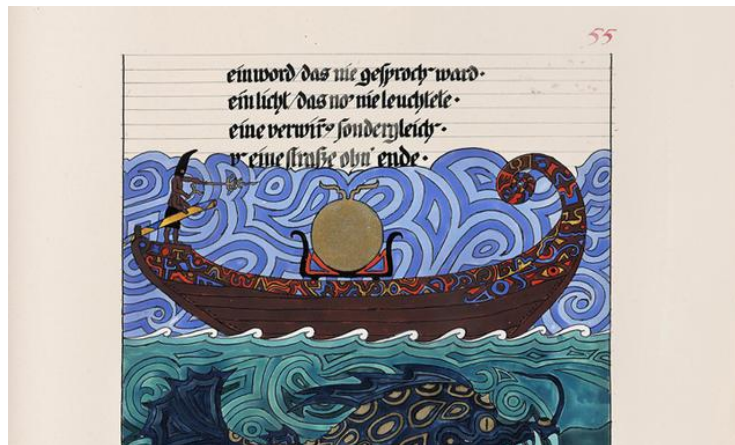 55
ein word / das nie gesproch‾ ward·
ein licht / das no‾ nie leuchtete·
eine verwirr‾g sondergleich‾·
v‾ eine straße ohn‾ ende·